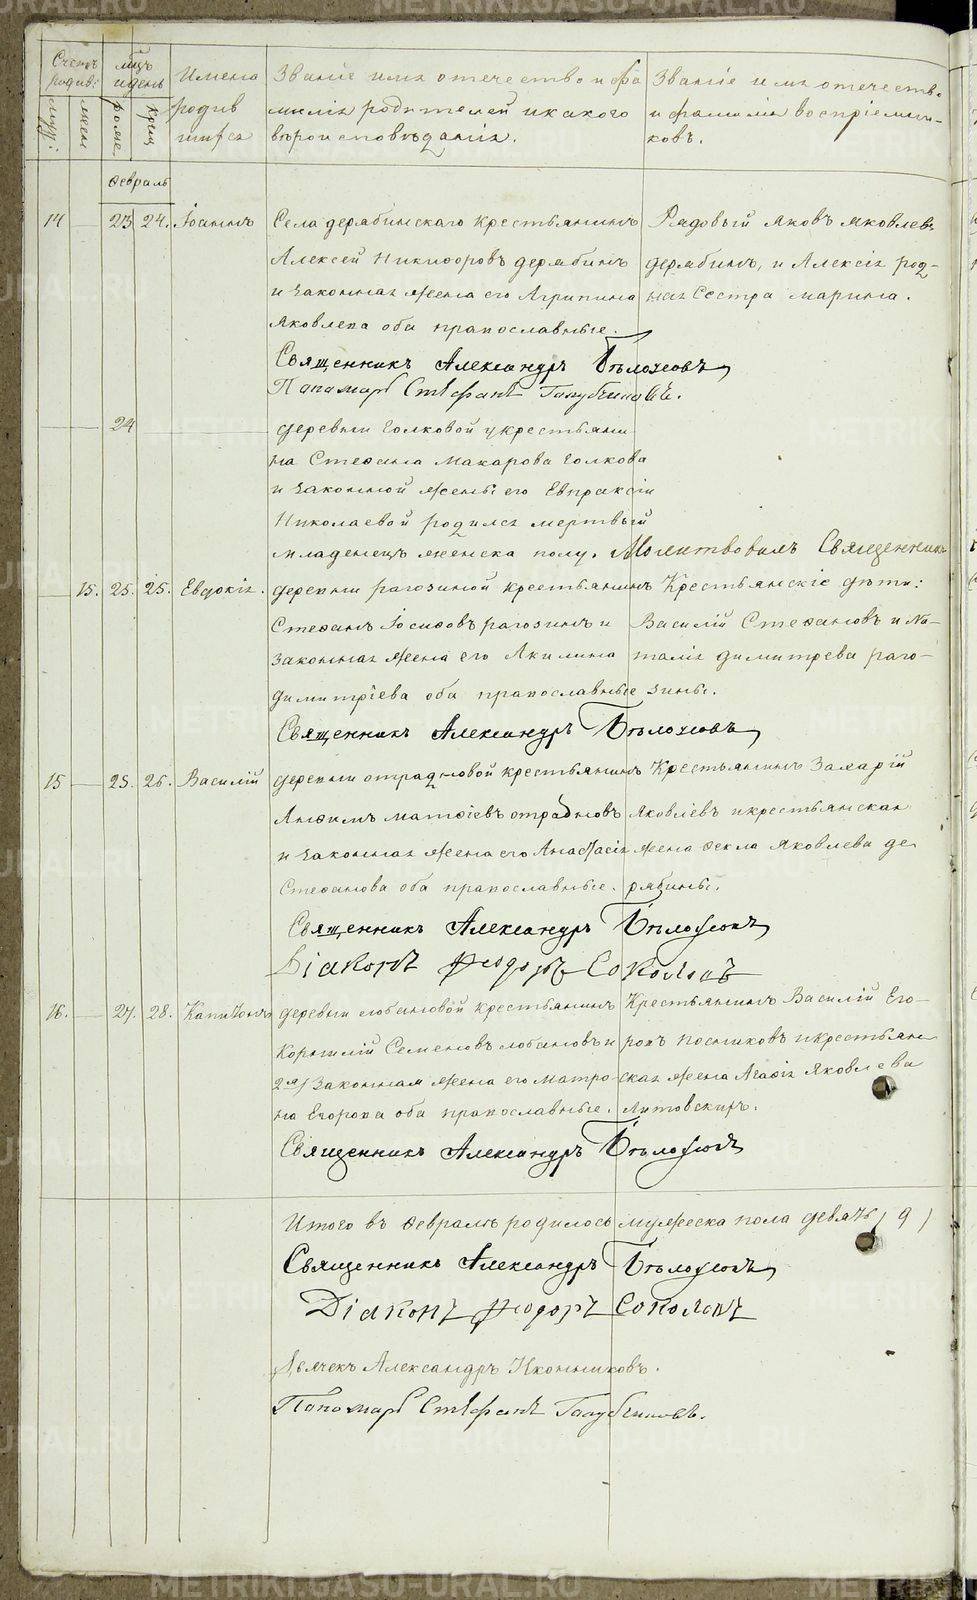 Счетъ родив:
мцъ и день
Имена родив шихся
Званіе имя отечество и фа милія родителей и какого вѣроисповѣданія.
Званіе имя отечество и фамилія воспріемни- ковъ.
муж:
жен
рожд
крещ
февраль
14 23 24. Іоаннъ Села дерябинскаго крестьянинъ Рядовый Яковъ Яковлевъ
Алексей Никифоровъ дерябинъ дерябинъ, и Алексія род-
и законная жена его Агрипина ная Сестра марина.
Яковлева оба православные.
Священникъ Александръ Бѣлоусовъ
Панамарь Стефанъ Голубчиковъ.
24 деревни Голковой у крестьяни
на Стефана Макарова Голкова
и законной жены его Евпраксіи
Николаевой родился мертвый
младенецъ женска полу. Молитвовалъ Священникъ
15. 25. 25. Евдокія. деревни рагозиной крестьянинъ Крестьянскіе дѣти:
Стефанъ Іосифовъ рагозинъ и Василій Стефановъ и На-
законная жена его Акилина талія димитрева раго-
димитріева оба православные зины.
Священникъ Александръ Бѣлоусовъ
15 25. 26. Василій деревни отрадновой крестьянинъ Крестьянинъ Захарій
Анфимъ матфіевъ отрадновъ Яковлевъ и крестьянская
и законная жена его Анастасія жена Фекла Яковлева де
Стефанова оба православные. рябины.
Священникъ Александръ Бѣлоусовъ
Діаконъ Феодоръ Соколовъ
16. 27. 28. Капитонъ деревни лобановой крестьянинъ Крестьянинъ Василій Его-
Корнилій Семеновъ лобановъ и ровъ Посниковъ и крестьян
законная жена его матро- ская жена Агафія Яковлева
на Егорова оба православные. Литовскихъ.
Священникъ Александръ Бѣлоусовъ
Итого въ февралѣ родилось мужеска пола девять (9)
Священникъ Александръ Бѣлоусовъ
Діаконъ Феодоръ Соколовъ
Дьячекъ Александръ Иконниковъ.
Пономарь Стефанъ Голубчиковъ.
METRIKI.GASU-URAL.RU